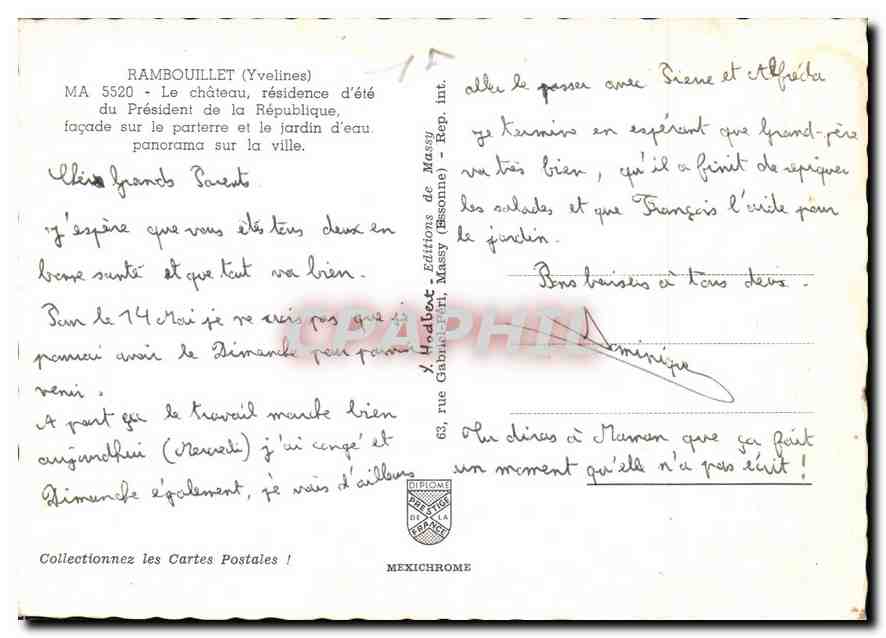 RAMBOUILLET (Yvelines)
MA 5520 - Le château, résidence d'été
du Président de la République,
façade sur le parterre et le jardin d'eau.
panorama sur la ville.
Chers Grands Parents
J'espère que vous êtes tous deux en
bonne santé et que tout va bien.
Pour le 14 Mai je ne crois pas que je
pourrai avoir le Dimanche pour pouvoir
venir.
A part ça le travail marche bien
aujourdhui (Mercredi) j'ai congé et
Dimanche également, je vais d'ailleurs
Collectionnez les Cartes Postales !
15
Y. Hodbert - Editions de Massy
63, rue Gabriel-Péri, Massy (Essonne) - Rep. int.
DIPLOME
PRESTIGE
DE LA
FRANCE
MEXICHROME
aller le passer avec Pierre et Alfréda
Je termine en espérant que Grand-père
va très bien, qu'il a finit de repiquer
les salades et que François l'aide pour
le jardin.
Bons baisers à tous deux.
Dominique
Tu diras à Maman que ça fait
un moment qu'elle n'a pas écrit !
CPAPHIL